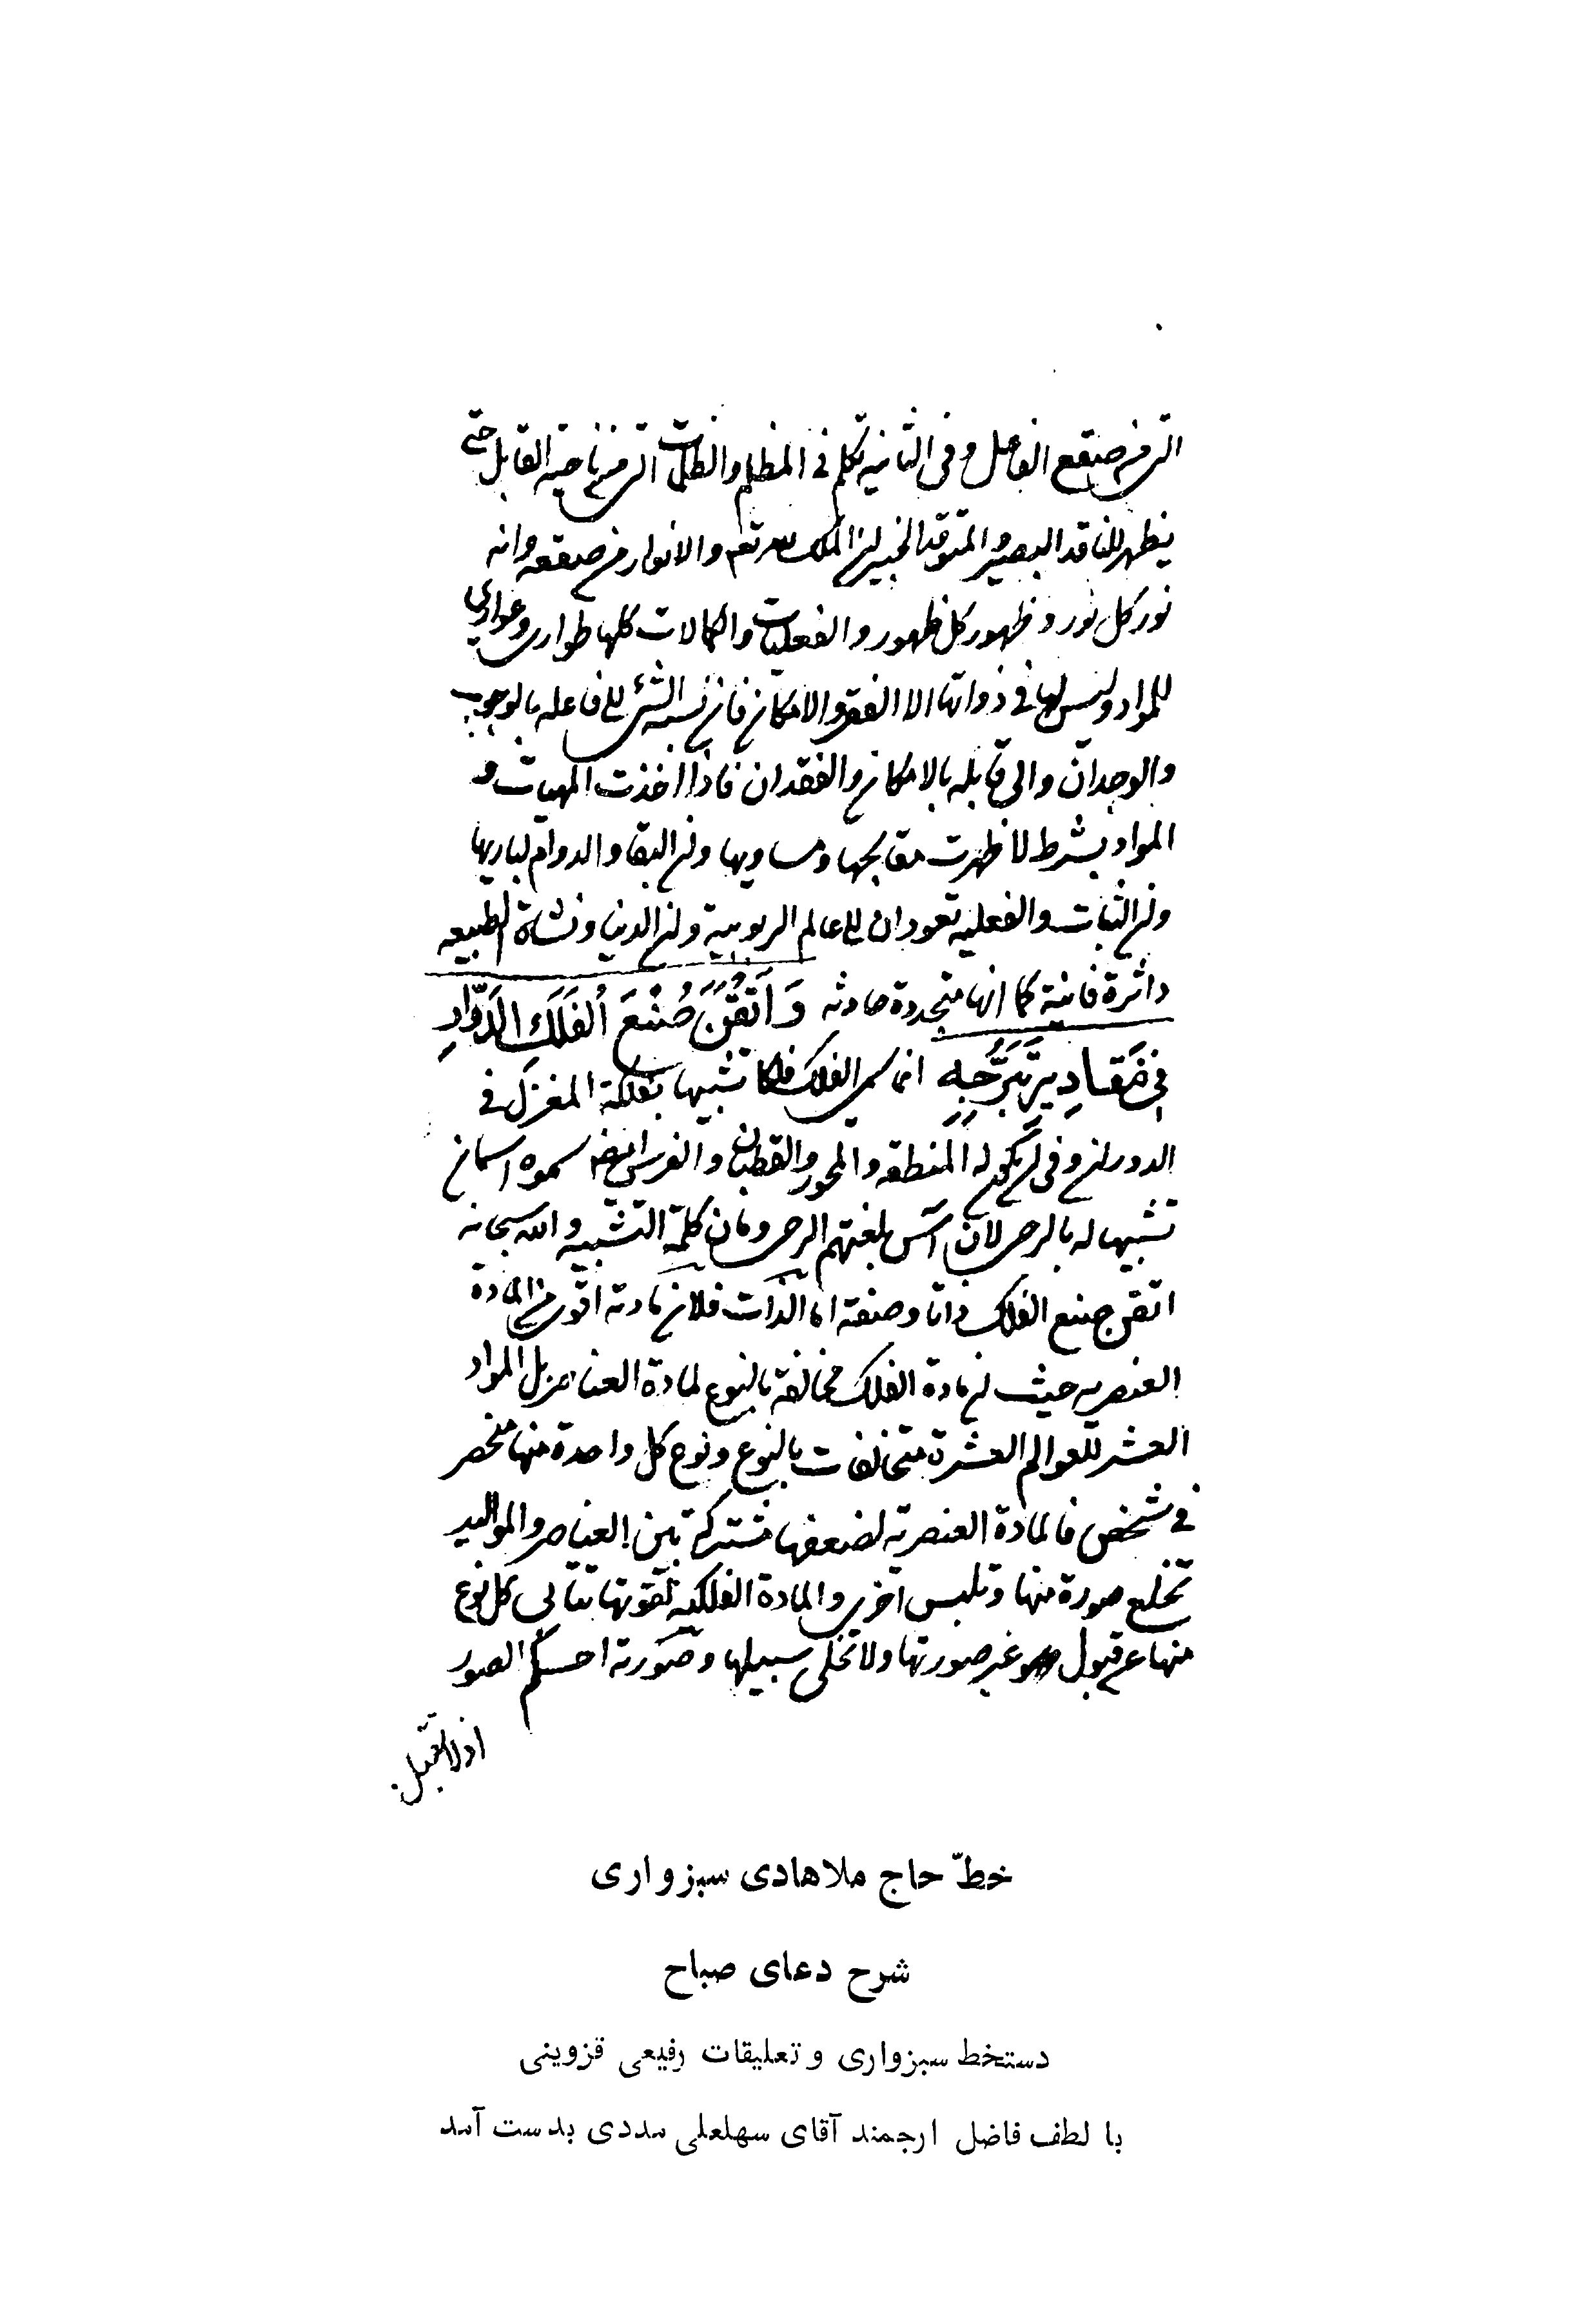 التی من صقع الفاعل وفی الثانیه تکلم فی المظلم والظلمات التی من ناحیة القابل حتی
یظهر للناقد البصیر والمتوقد الخبیر ان الملک لله تعم والانوار من صقعه وانه
نور کل نور وظهور کل ظهور والفعلیات والکمالات کلها طواری وعواری
للمواد ولیس لها فی ذواتها الا الفقر والامکان فان نسبة الشیء الی فاعله بالوجوب
والوجدان والی قابله بالامکان والفقدان فاذا اخذت المهیات و
المواد بشرط لا ظهرت مقابحها ومساویها وان البقاء والدوام لباریها
وان الثبات والفعلیه تعودان الی عالم الربوبیة وان الدنیا ونشاة الطبیعه
داثرة فانیة کما انها متجددة حادثه وَاَتْقَنَ صُنْعَ الْفَلَكِ الدَّوّارِ
فی مَقادِیرِ تَبَرُّجِهِ انما سمی الفلک فلکا تشبیها بفلکة المغزل فی
الدوران وفی ان یکون له المنطقه والمحور والقطبان والفرس ایضا سموه اسمان
تشبیها له بالرحی لان آس بلغتهم الرحی ومان کلمة التشبیه والله سبحانه
اتقن صنع الفلک ذاتا وصفة اما الذات فلان مادته اقوی من المادة
العنصریه حیث ان مادة الفلک مخالفة بالنوع لمادة العناصر بل المواد
العشر للعوالم العشرة متخالفات بالنوع ونوع کل واحدة منها منحصر
فی شخص فالمادة العنصریه لضعفها مشترکة بین العناصر والموالید
تخلع صورة منها وتلبس اخری والمادة الفلکیه لقوتها تتابی کل نوع
منها عن قبول غیر صورتها ولا تخلی سبیلها وصورته احکم الصور
اذ لا تقبل
خطّ حاج ملا هادی سبزواری
شرح دعای صباح
دستخط سبزواری و تعلیقات رفیعی قزوینی
با لطف فاضل ارجمند آقای سهلعلی مددی بدست آمد